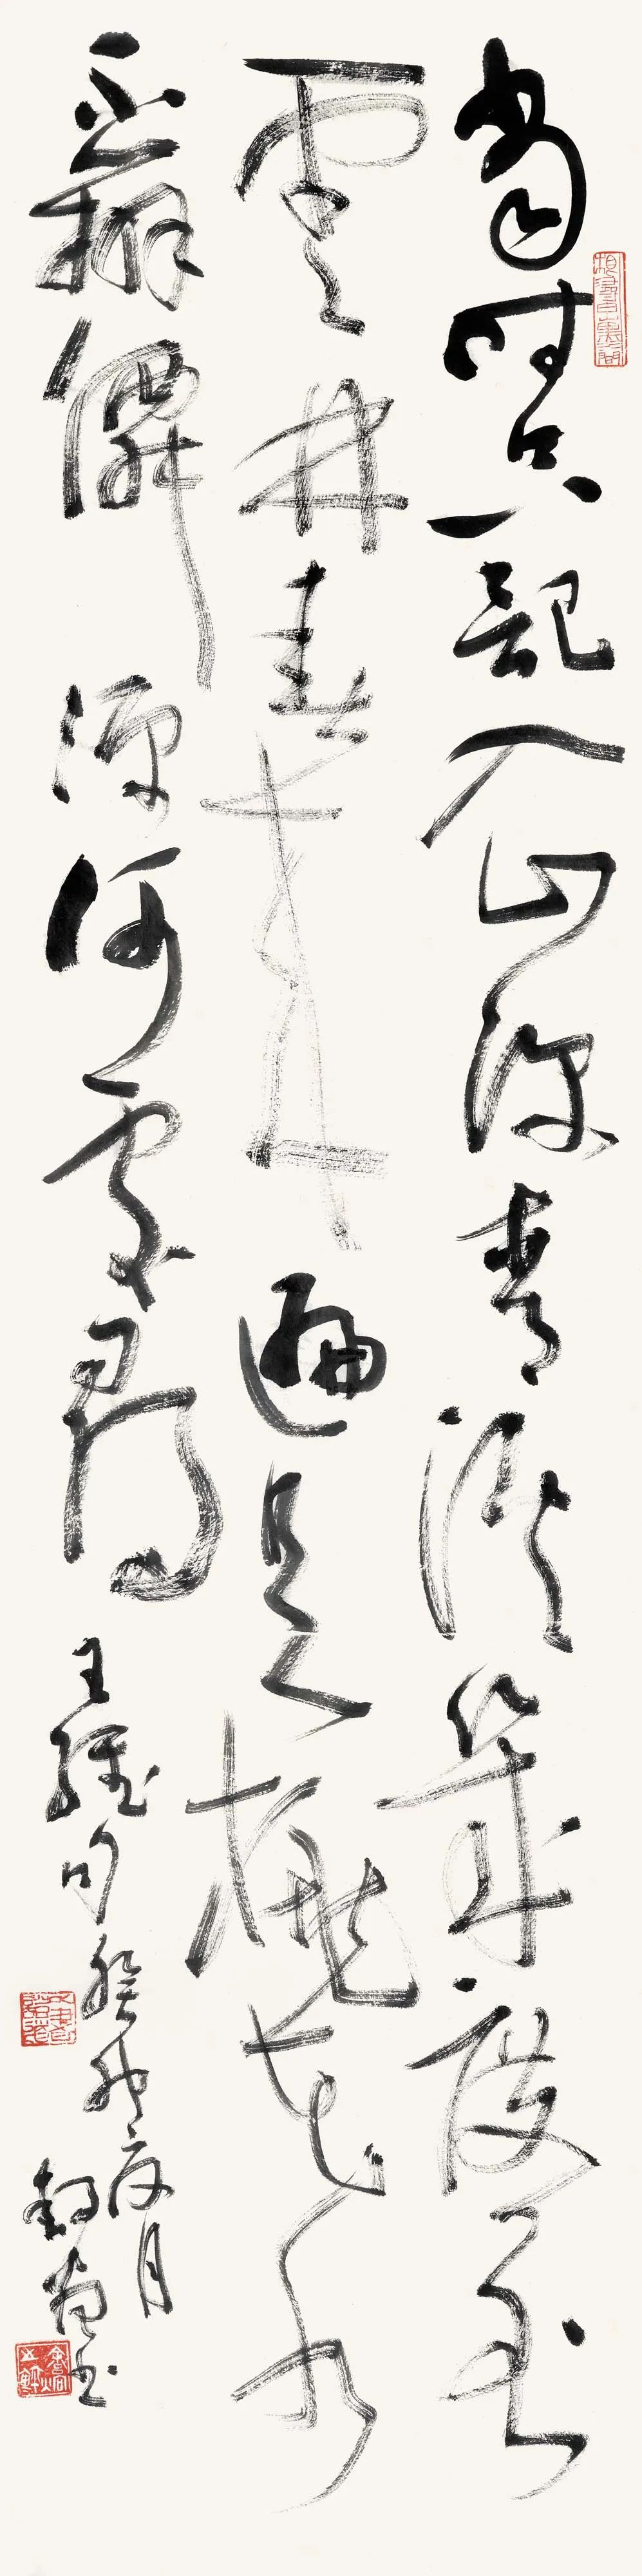 當時只記入山深青溪幾度到
雲林春來遍是桃花水
不辨僊源何處尋
王維句
癸卯夏月
書